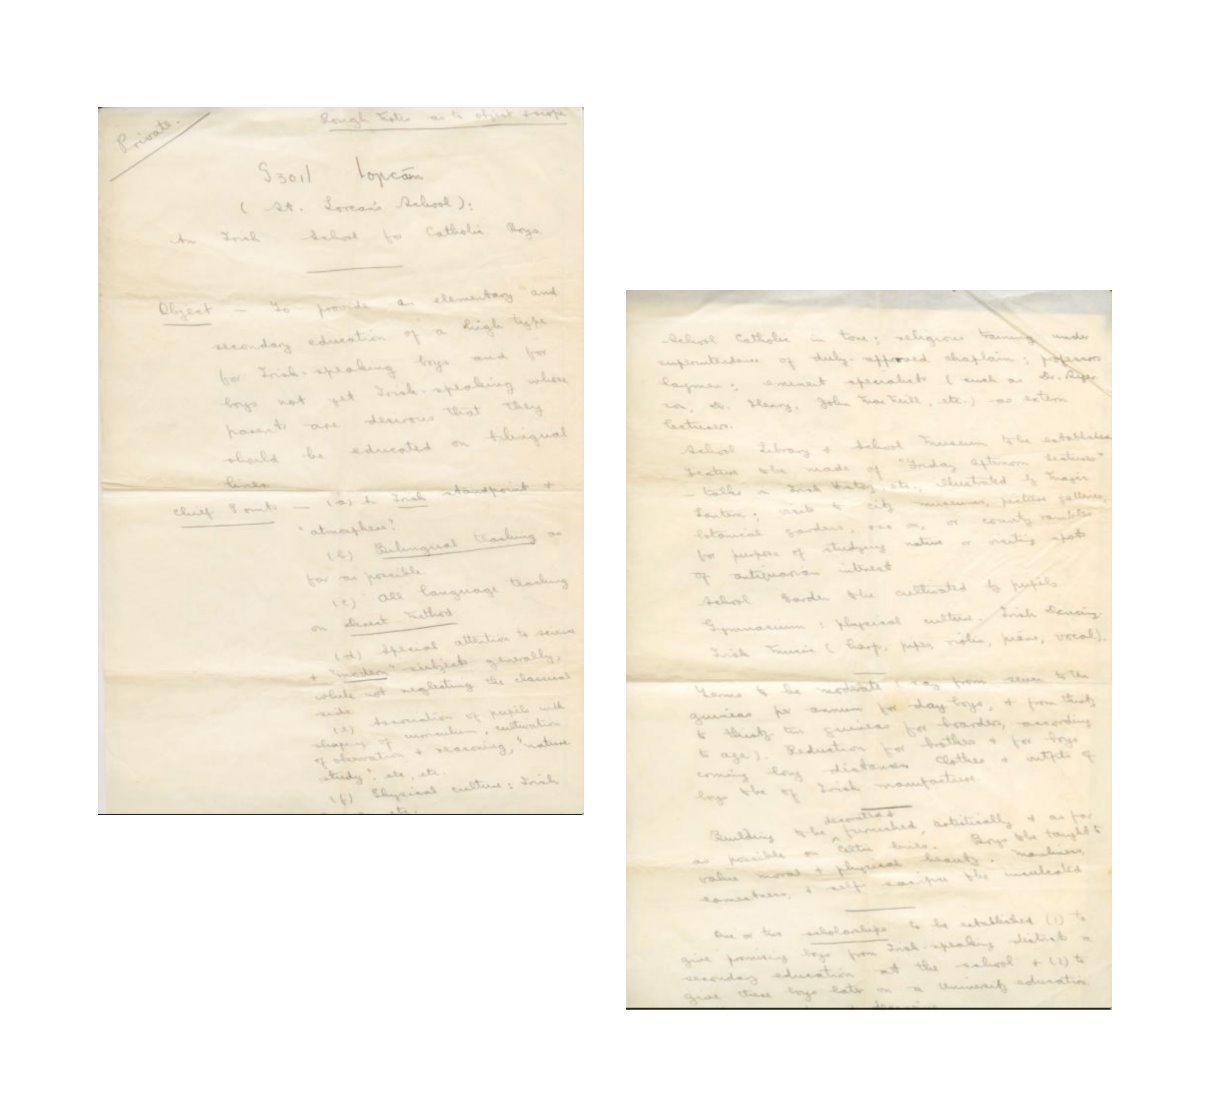 Private.
Rough Notes as to object & scope
Sgoil Lorcáin
( St. Lorcan's School ):
An Irish School for Catholic Boys.
Object — To provide an elementary and
secondary education of a high type
for Irish-speaking boys and for
boys not yet Irish-speaking whose
parents are desirous that they
should be educated on bilingual
lines.
Chief Points — (a) An Irish standpoint &
"atmosphere".
(b) Bilingual Teaching as
far as possible.
(c) All language teaching
on Direct Method
(d) Special attention to science
& "modern" subjects generally,
while not neglecting the classical
side
(e) Association of pupils with
shaping of curriculum, cultivation
of observation & reasoning, "nature
study", etc., etc.
(f) Physical culture; Irish
etc.
School Catholic in tone; religious training under
superintendence of duly-approved chaplain; professors
laymen; eminent specialists (such as Dr.
Dr. Henry, John MacNeill, etc.) as extern
lecturers.
School Library & School Museum to be established
Feature to be made of "Friday afternoon lectures"
— talks on Irish history, etc., illustrated by Magic
Lantern; visits to city museums, picture galleries,
botanical gardens, zoo, or country rambles
for purpose of studying nature or visiting spots
of antiquarian interest
School Garden to be cultivated by pupils.
Gymnasium; physical culture. Irish dancing.
Irish Music (harp, pipes, violin, piano, vocal).
Terms to be moderate (say from seven to ten
guineas per annum for day boys, & from thirty
to thirty ten guineas for boarders, according
to age). Reduction for brothers & for boys
coming long distances. Clothes & outfits of
boys to be of Irish manufacture.
decorated &
Building to be furnished, artistically & as far
as possible on Celtic lines. Boys to be taught to
value moral & physical beauty. Manliness,
earnestness, & self-sacrifice to be inculcated
One or two scholarships to be established (1) to
give promising boys from Irish-speaking districts a
secondary education at the school & (2) to
give these boys later on a University education